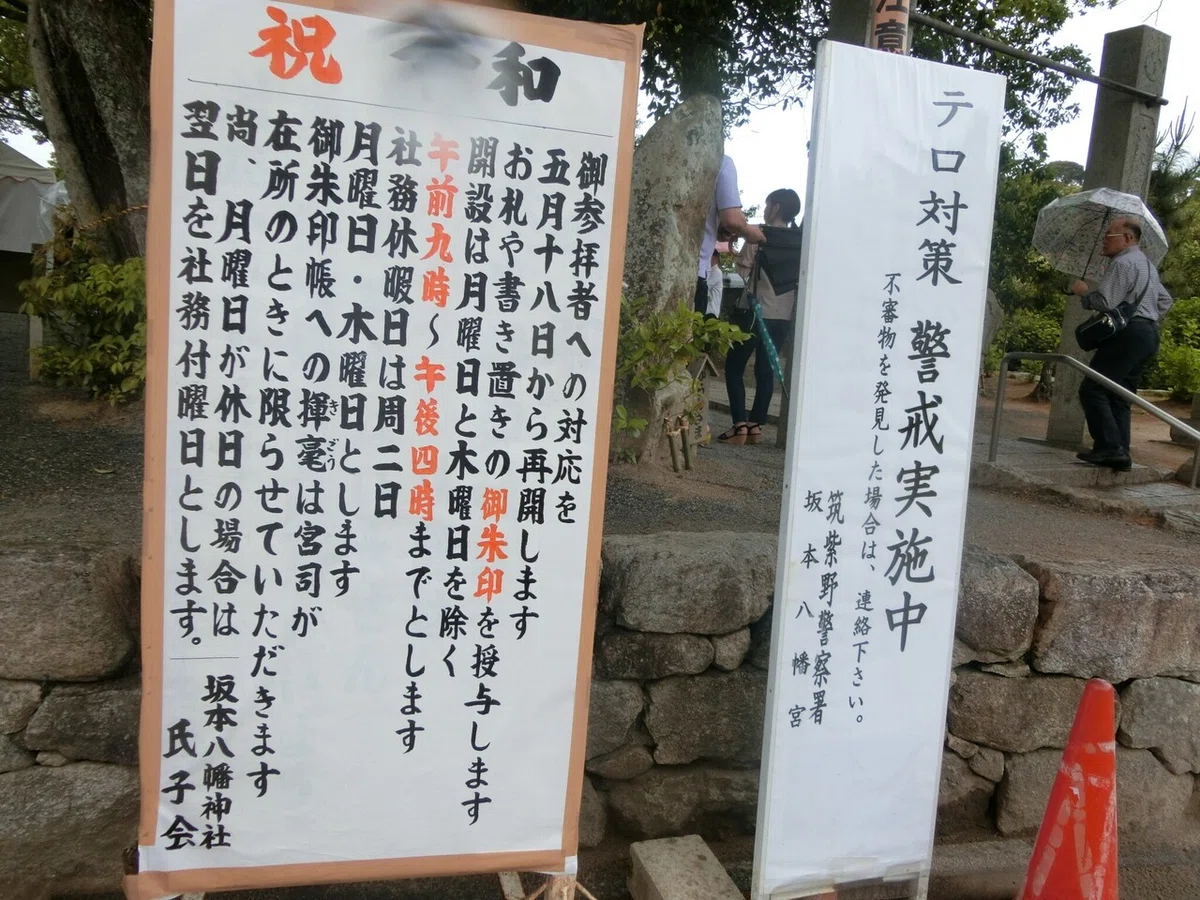 祝 和
御参拝者への対応を
五月十八日から再開します
お札や書き置きの御朱印を授与します
開設は月曜日と木曜日を除く
午前九時～午後四時までとします
社務休暇日は周二日
月曜日・木曜日とします
御朱印帳への揮毫は宮司が
きごう
在所のときに限らせていただきます
尚、月曜日が休日の場合は
翌日を社務付曜日とします。
坂本八幡神社
氏子会
注意
テロ対策 警戒実施中
不審物を発見した場合は、連絡下さい。
筑紫野警察署
坂本八幡宮